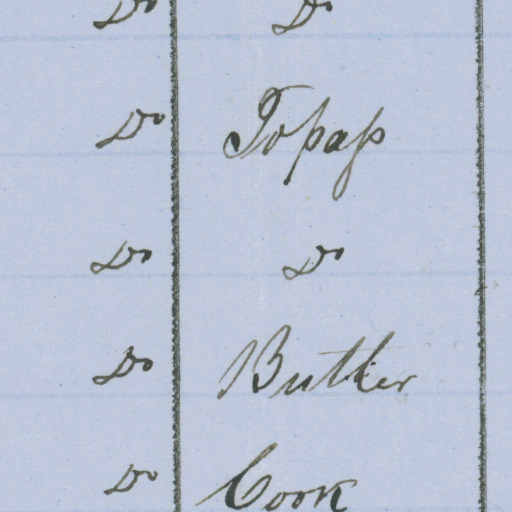 Do Do
Do Topass
Do Do
Do Butler
Do Cook